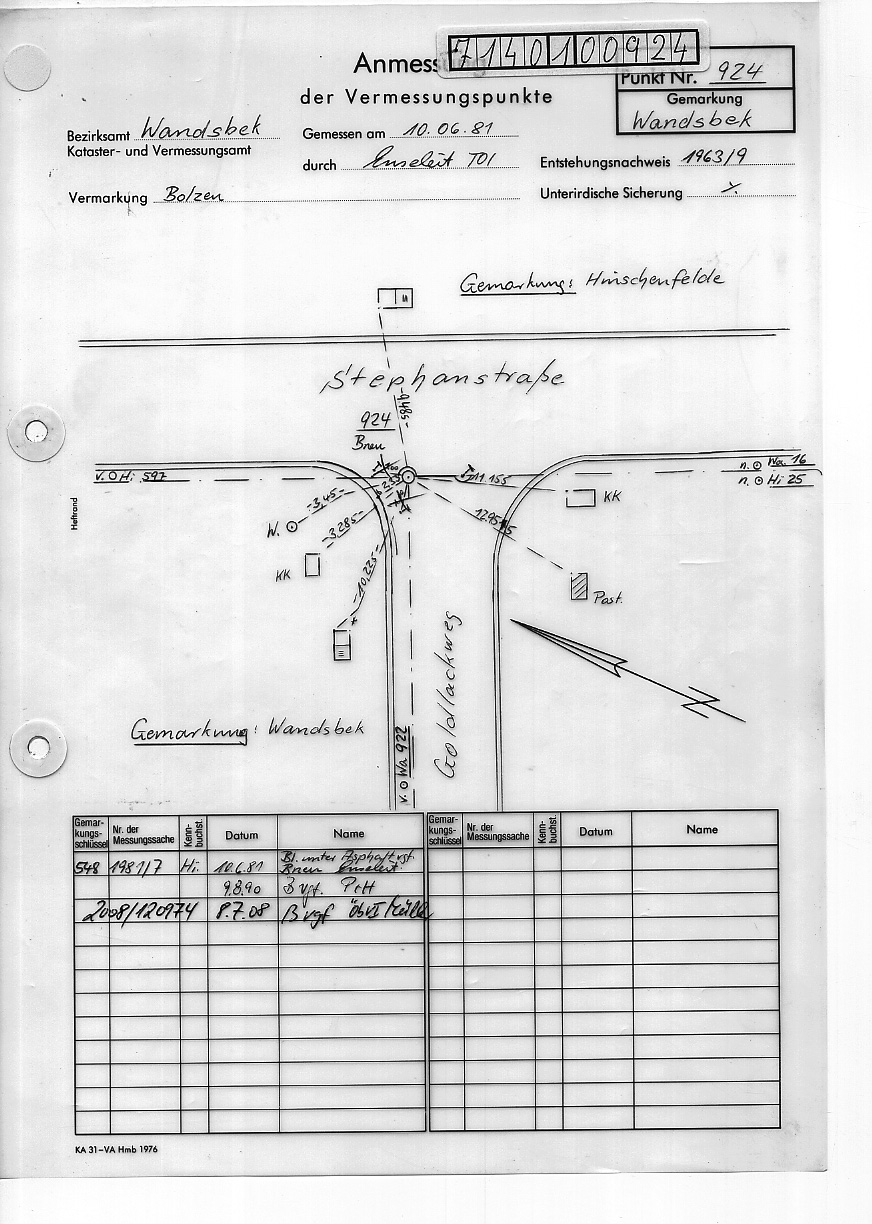 7140100924
Anmess
der Vermessungspunkte
Punkt Nr. 924
Gemarkung
Wandsbek
Bezirksamt Wandsbek
Kataster- und Vermessungsamt
Gemessen am 10.06.81
durch Enseleit TOI
Entstehungsnachweis 1963/9
Vermarkung Bolzen
Unterirdische Sicherung
Gemarkung: Hinschenfelde
Stephanstraße
9,485
924
Bneu
v. Hi 597
11.155
n. Wa. 16
n. Hi 25
KK
3,45
W.
3,285
KK
10,225
Post.
Heftrand
Goldlackweg
Gemarkung: Wandsbek
v. Wa 922
Gemar-
kungs-
schlüssel
Nr. der
Messungssache
Kenn-
buchst.
Datum
Name
Gemar-
kungs-
schlüssel
Nr. der
Messungssache
Kenn-
buchst.
Datum
Name
548 1981/7 Hi. 10.6.81 Bl. unter Asphalt vgf.
Bneu Enseleit
9.8.90 B vgf.
2008/120974 8.7.08 B vgf ÖbVI
KA 31–VA Hmb 1976